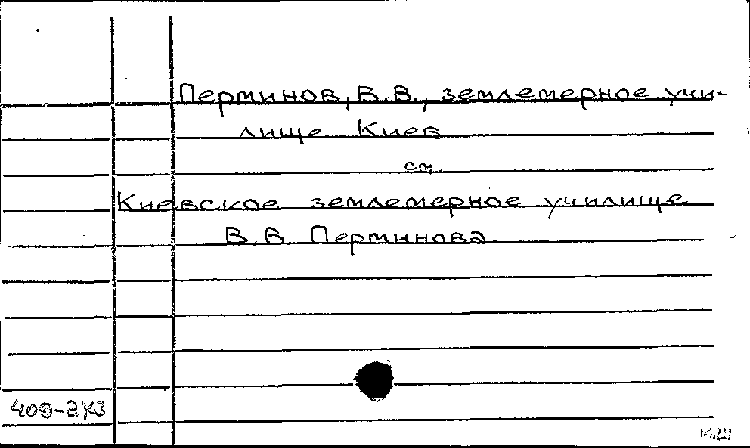 Перминов, В.В., землемерное учи-
лище Киев
см.
Киевское землемерное училище
В.В. Перминова